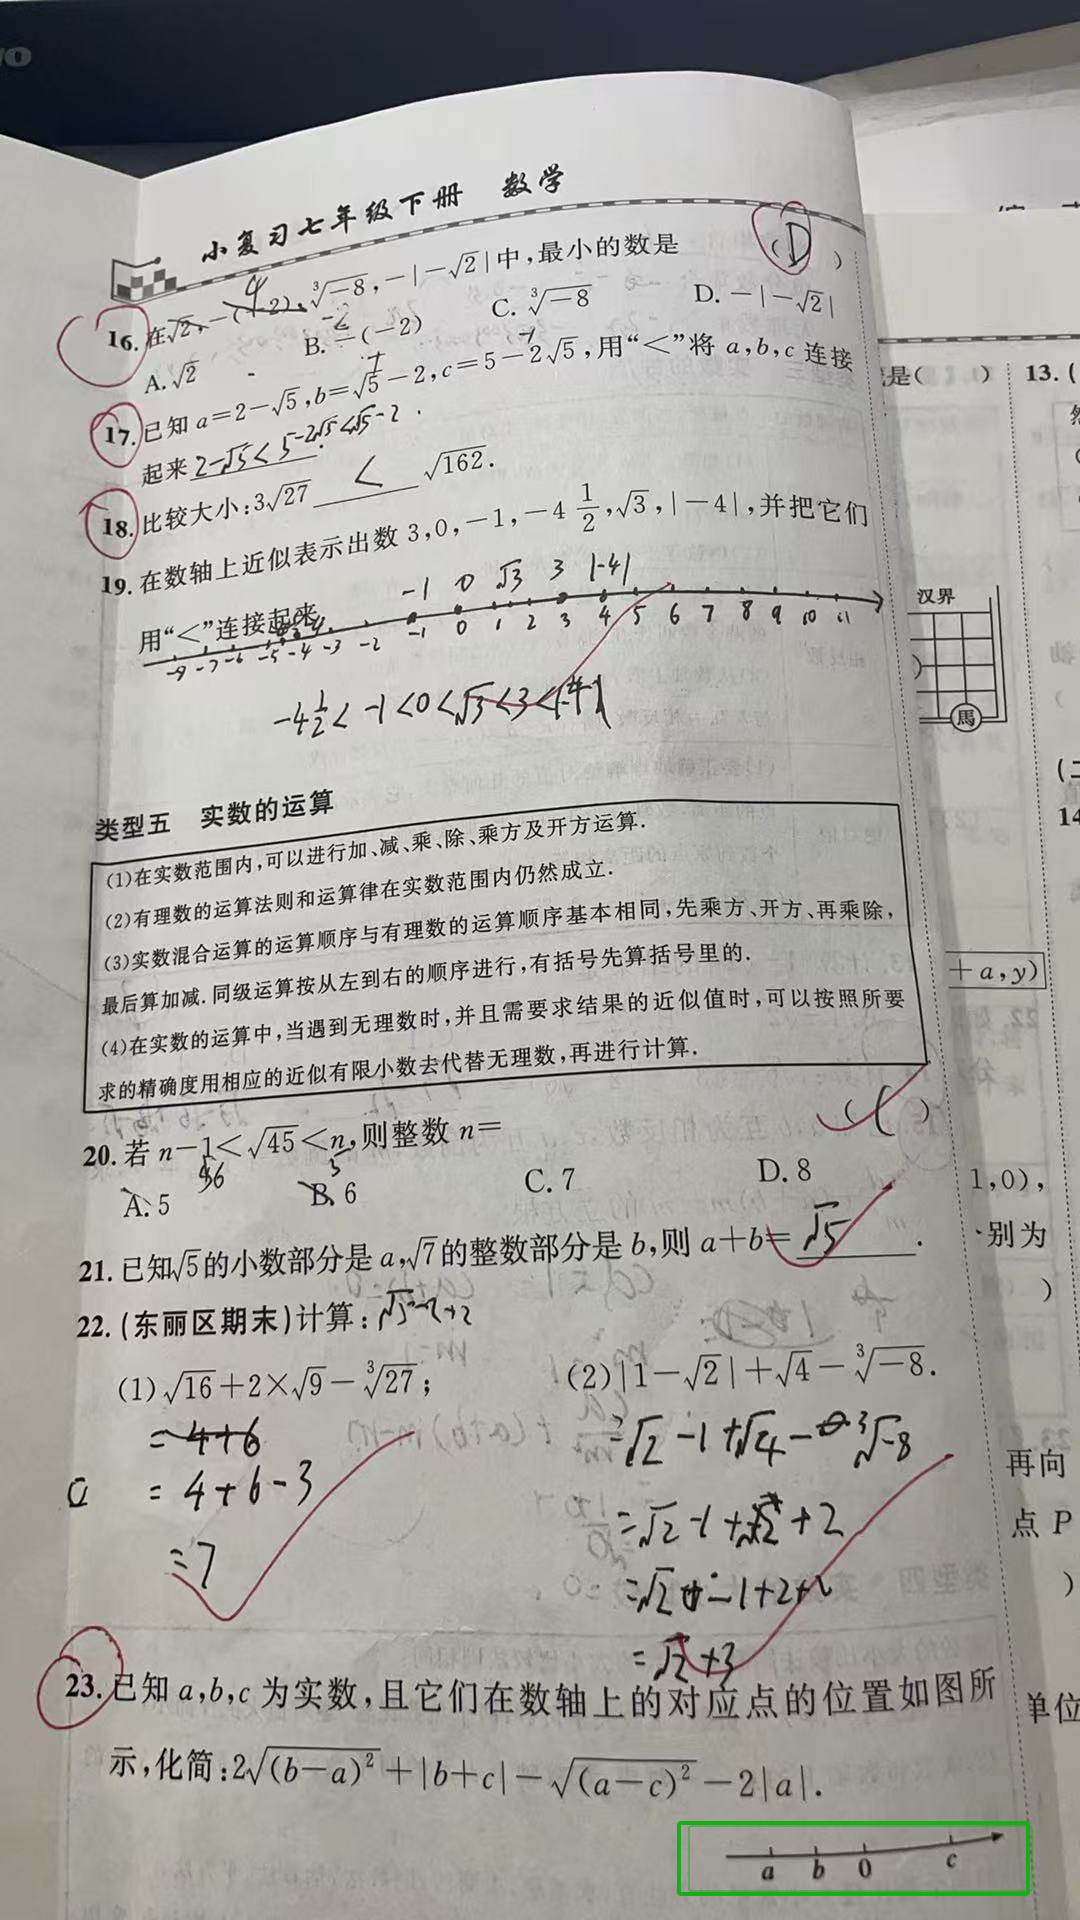 小复习七年级下册 数学
16. 在√2, -(-2), ³√-8, -|-√2|中,最小的数是 ( D )
4
-2
A. √2 B. -(-2) C. ³√-8 D. -|-√2|
17. 已知 a=2-√5, b=√5-2, c=5-2√5, 用“<”将 a,b,c 连接
起来 2-√5<5-2√5<√5-2 .
18. 比较大小: 3√27 < √162.
19. 在数轴上近似表示出数 3, 0, -1, -4 1/2, √3, |-4|, 并把它们
用“<”连接起来.
-1 0 √3 3 |-4|
-9 -7 -6 -5 -4 -3 -2 -1 0 1 2 3 4 5 6 7 8 9 10 11
-4 1/2 < -1 < 0 < √3 < 3 < |-4|
类型五 实数的运算
(1)在实数范围内,可以进行加、减、乘、除、乘方及开方运算.
(2)有理数的运算法则和运算律在实数范围内仍然成立.
(3)实数混合运算的运算顺序与有理数的运算顺序基本相同,先乘方、开方、再乘除,
最后算加减.同级运算按从左到右的顺序进行,有括号先算括号里的.
(4)在实数的运算中,当遇到无理数时,并且需要求结果的近似值时,可以按照所要
求的精确度用相应的近似有限小数去代替无理数,再进行计算.
20. 若 n-1<√45<n, 则整数 n= ( C )
A. 5 B. 6 C. 7 D. 8
21. 已知√5的小数部分是 a, √7的整数部分是 b, 则 a+b= √5 .
22. (东丽区期末)计算: √5-2+2
(1) √16+2×√9-³√27; (2) |1-√2|+√4-³√-8.
=4+6
=4+6-3
=7
=√2-1+√4-³√-8
=√2-1+2+2
=√2-1+2+2
=√2+3
23. 已知 a,b,c 为实数,且它们在数轴上的对应点的位置如图所
示,化简: 2√(b-a)²+|b+c|-√(a-c)²-2|a|.
a b 0 c
是( )
13. (
汉界
馬
14
+a,y)
1,0),
别为
)
再向
点 P
)
单位